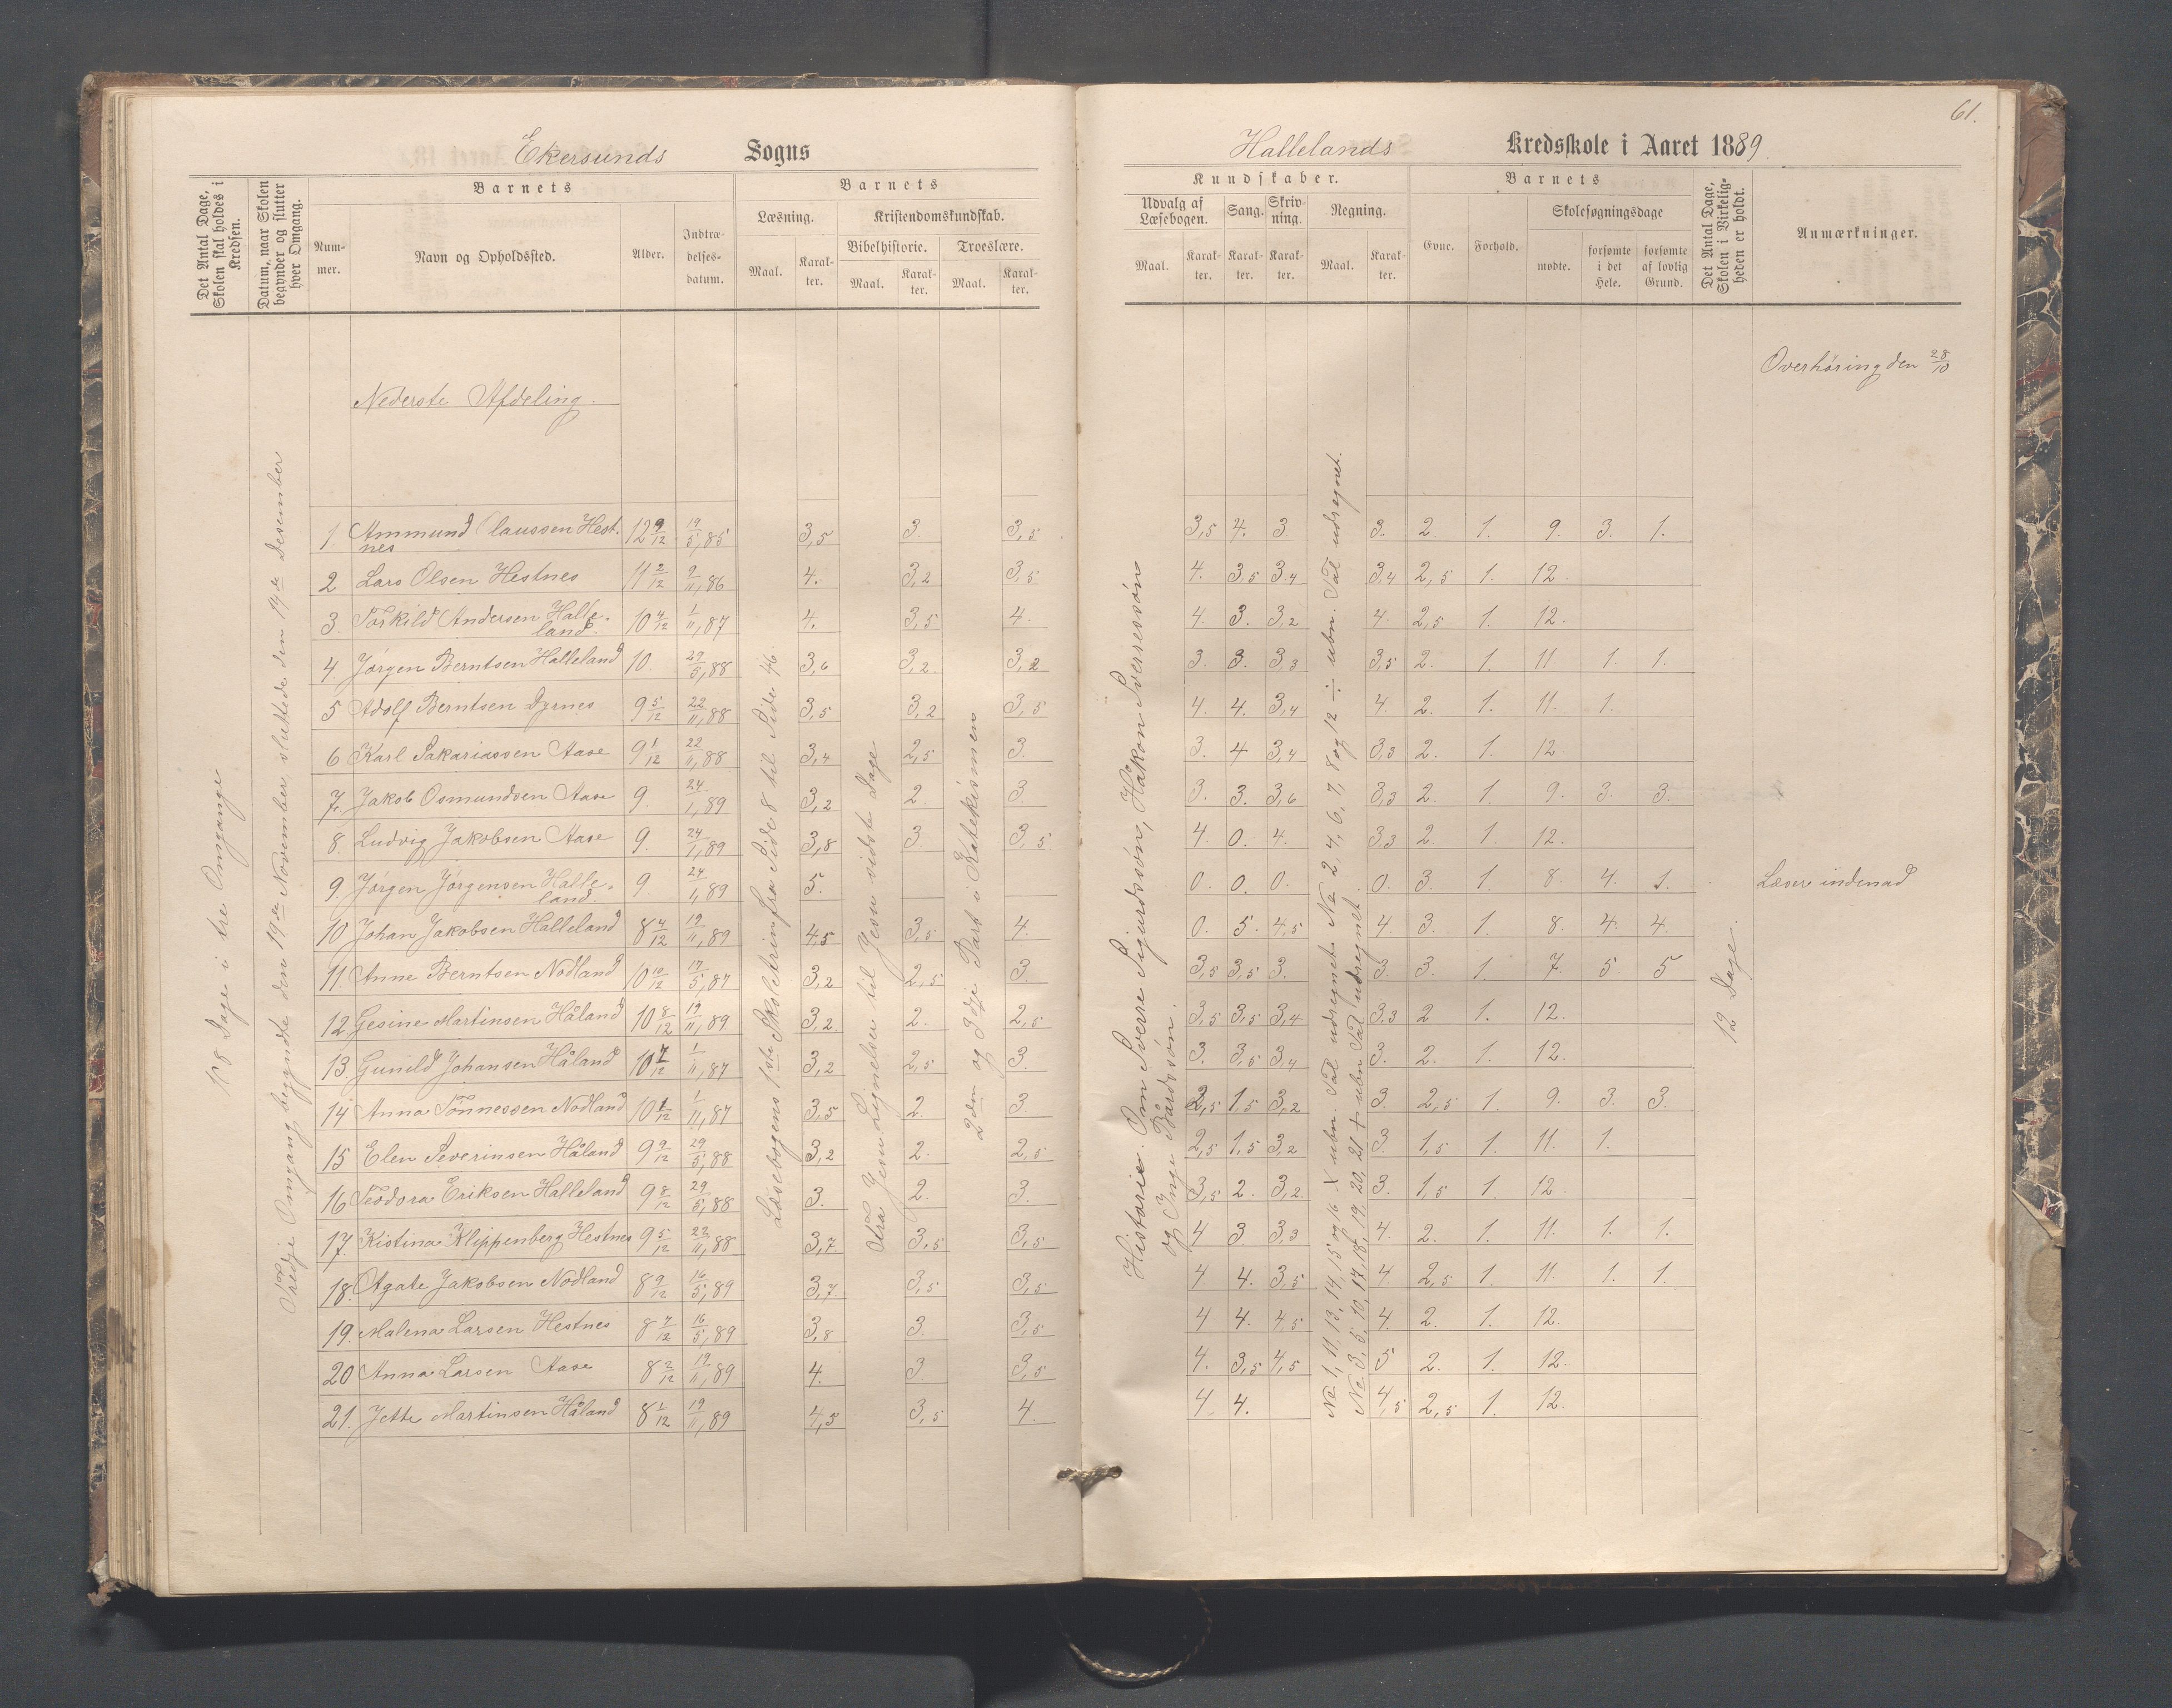 61.
Ekersunds Sogns
Hallelands Kredsskole i Aaret 1889.
Det Antal Dage, Skolen skal holdes i Kredsen.
Datum, naar Skolen begynder og slutter hver Omgang.
Barnets
Nummer.
Navn og Opholdssted.
Alder.
Indtrædelses-datum.
Barnets
Læsning.
Maal.
Karakter.
Kristendomskundskab.
Bibelhistorie.
Maal.
Karakter.
Troeslære.
Maal.
Karakter.
Kundskaber.
Udvalg af Læsebogen.
Maal.
Karakter.
Sang.
Karakter.
Skrivning.
Karakter.
Regning.
Maal.
Karakter.
Barnets
Evne.
Forhold.
Skolesøgningsdage
mødte.
forsømte i det Hele.
forsømte af lovlig Grund.
Det Antal Dage, Skolen i Virkeligheden er holdt.
Anmærkninger.
Overhöring den 28/10
Nederste Afdeling.
108 Dage i tre Omgange
Tredje Omgang begyndte den 19de November sluttede den 14de Desember
Læsebogens 1ste Skoletrin fra Side 8 til Side 46.
Fra Jesu Lignelser til Jesu sidste Dage
2den og 3dje Part i Katekismen
Historie. Om Sverre Sigurdssön, Håkon Sverressön
og Inge Bårdssön.
No 1, 11, 13, 14, 15 og 16 X ubn. Tal udregnet. No 2, 4, 6, 7, 8 og 12 ÷ ubn. Tal udregnet.
No. 3, 5, 10, 17, 18, 19, 20, 21 + ubn Tal udregnet.
12 Dage.
1. Ammund Claussen Hestnes 12 9/12 19/5,85 3,5 3. 3,5 3,5 4. 3 3. 2. 1. 9. 3. 1.
2 Lars Olsen Hestnes 11 2/12 9/11,86 4. 3,2 3,5 4. 3,5 3,4 3,4 2,5 1. 12.
3. Torkild Andersen Halleland. 10 4/12 1/11,87 4. 3,5 4. 4. 3. 3,2 4. 2,5 1. 12.
4. Jörgen Berntsen Halleland 10. 29/5,88 3,6 3,2. 3,2 3. 3. 3,3 3,5 2. 1. 11. 1. 1.
5 Adolf Berntsen Dyrnes 9 5/12 22/11,88 3,5 3,2 3,5 4. 4. 3,4 4. 2. 1. 11. 1.
6 Karl Sakariassen Aase 9 1/12 22/11,88 3,4 2,5 3. 3. 4 3,4 3,3 2. 1. 12.
7. Jakob Osmundsen Aase 9. 24/1,89 3,2 2. 3. 3. 3. 3,6 3,3 2. 1. 9. 3. 3.
8. Ludvig Jakobsen Aase 9. 24/1,89 3,8 3. 3,5 4 0. 4. 3,3 2. 1. 12.
9. Jörgen Jörgensen Halleland. 9. 24/1,89 5. 0. 0. 0. 0. 3. 1. 8. 4. 1. Læser indenad
10 Johan Jakobsen Halleland 8 4/12 19/11,89 4,5 3,5 4. 0. 5. 4,5 4. 3. 1. 8. 4. 4.
11. Anne Berntsen Nodland 10 10/12 17/5,87 3,2 2,5 3. 3,5 3,5 3. 3. 3. 1. 7. 5. 5
12. Gesine Martinsen Håland 10 8/12 19/11,89 3,2 2. 2,5 3,5 3,5 3,4 3,3 2 1. 12.
13. Gunild Johansen Håland 10 7/12 1/11,87 3,2 2,5 3. 3. 3,5 3,4 3. 2. 1. 12.
14 Anna Tönnessen Nodland 10 1/12 1/11,87 3,5 2. 3. 2,5 1,5 3,2 3. 2,5 1. 9. 3. 3.
15 Elen Severinsen Håland 9 9/12 29/5,88 3,2 2. 2,5 2,5 1,5 3,2 3. 1,5 1. 11. 1.
16 Teodora Eriksen Halleland 9 8/12 29/5,88 3. 2. 3. 3,5 2. 3,2. 3. 1,5 1. 12.
17. Kistina Klippenberg Hestnes 9 5/12 22/11,88 3,7 3,5 3,5 4 3 3,3 4. 2. 1. 11. 1. 1.
18. Agate Jakobsen Nodland 8 9/12 16/5,89 3,7. 3,5 3,5 4 4. 3,5 4. 2,5 1. 11. 1. 1.
19. Malena Larsen Hestnes 8 7/12 16/5,89 3,8 3. 3,5 4 4. 4,5 4. 2. 1. 12.
20 Anna Larsen Aase 8 2/12 19/11,89 4. 3. 3,5 4. 3,5 4,5 5 2. 1. 12.
21. Jette Martinsen Håland 8 1/12 19/11,89 4,3 3,5 4. 4. 4. 4,5 2,5 1. 12.